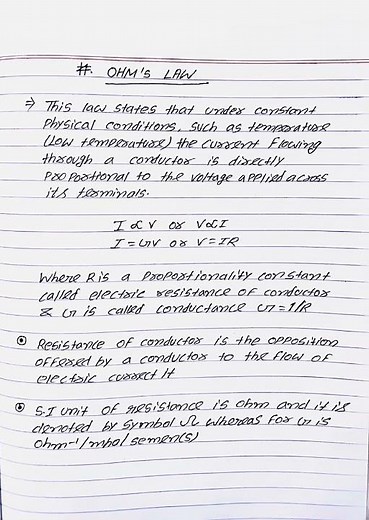 #. OHM's LAW
⇒ This law states that under constant
Physical conditions, such as temperature
(Low temperature) the current Flowing
through a conductor is directly
Proportional to the voltage applied across
its terminals.
I ∝ V or V∝I
I = GV or V = IR
Where R is a Proportionality constant
called electric resistance of conductor
& G is called conductance G = 1/R
⊙ Resistance of conductor is the opposition
offered by a conductor to the flow of
electric current It
⊙ S.I unit of resistance is ohm and it is
denoted by symbol Ω whereas For G is
Ohm⁻¹/mho/ semen(s)